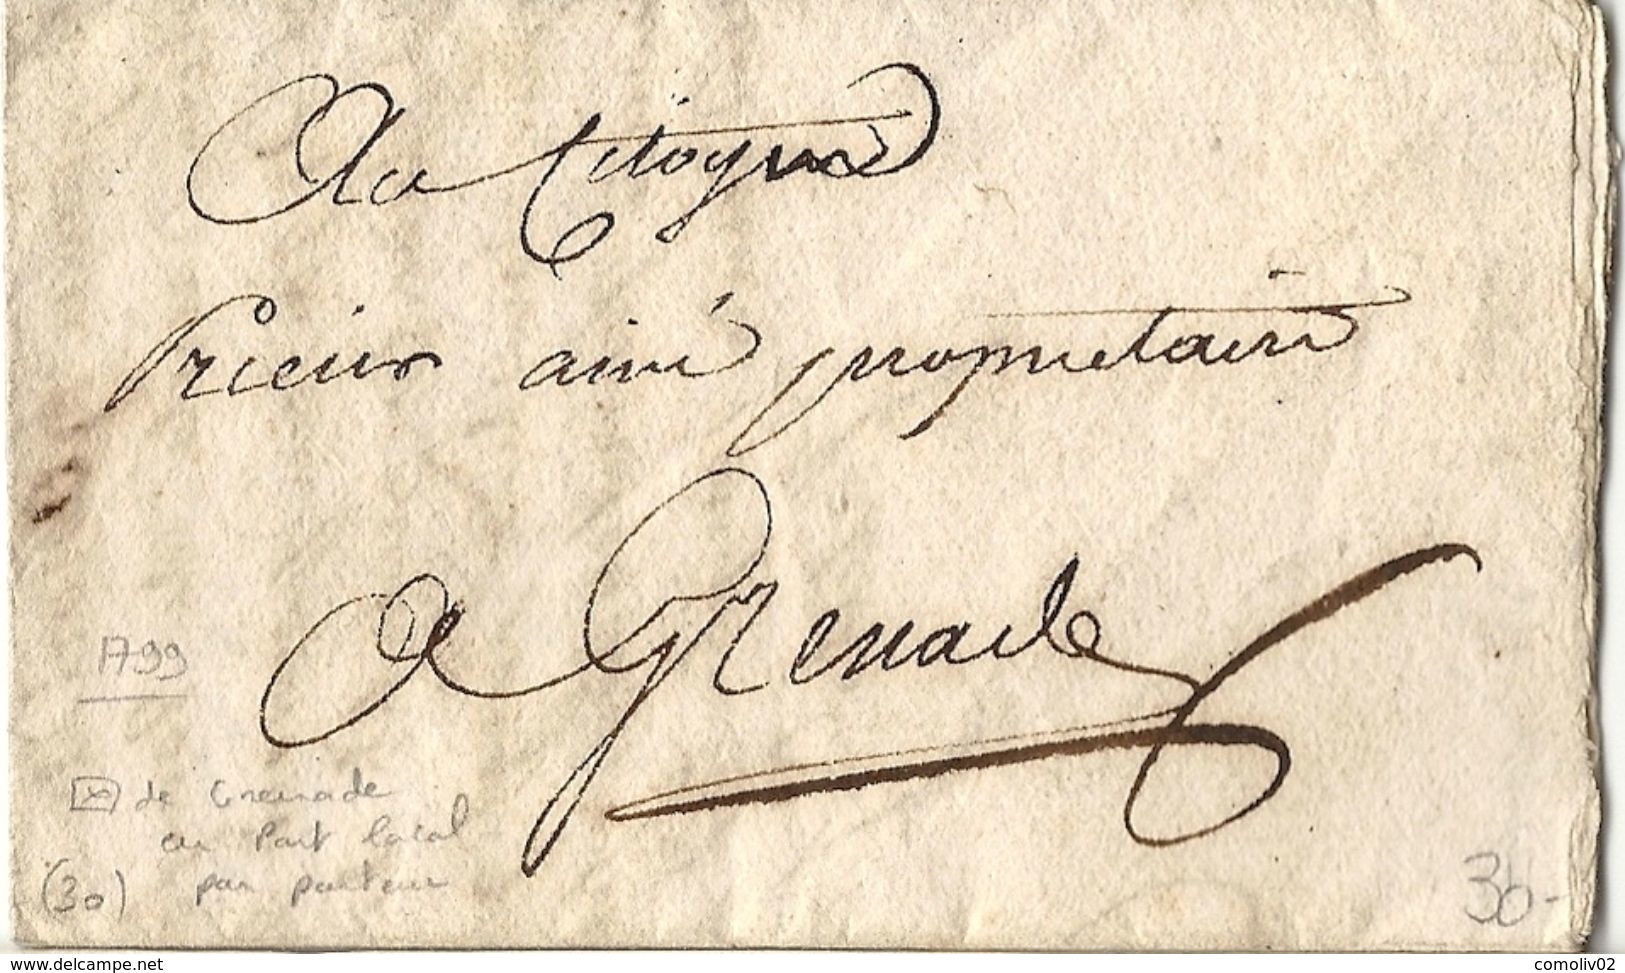 Au Citoyen
Prieur ainé propriétaire
A Grenade
1799
de Grenade
en Port local
par porteur
(30)
30-
www.delcampe.net
comoliv02